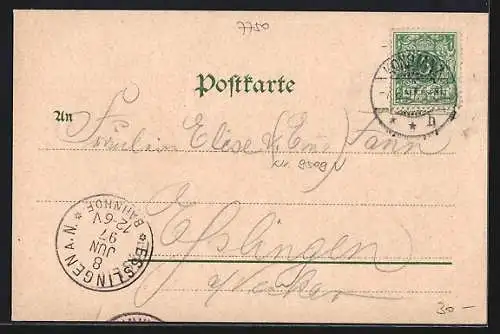 7750
Postkarte
An
Fräulein Elise & Emy Fann
Nr. 8509 N
Esslingen
a/Neckar
ESSLINGEN A.N. BAHNHOF
8
JUN
97
12-6V
30-